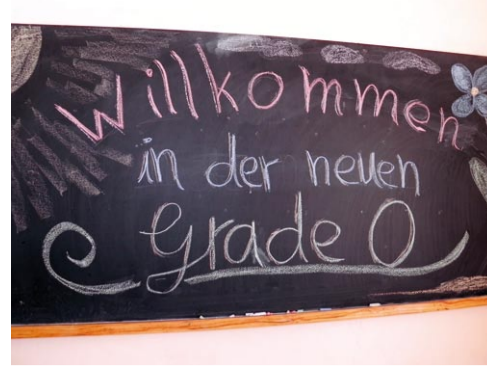 Willkommen
in der neuen
Grade 0